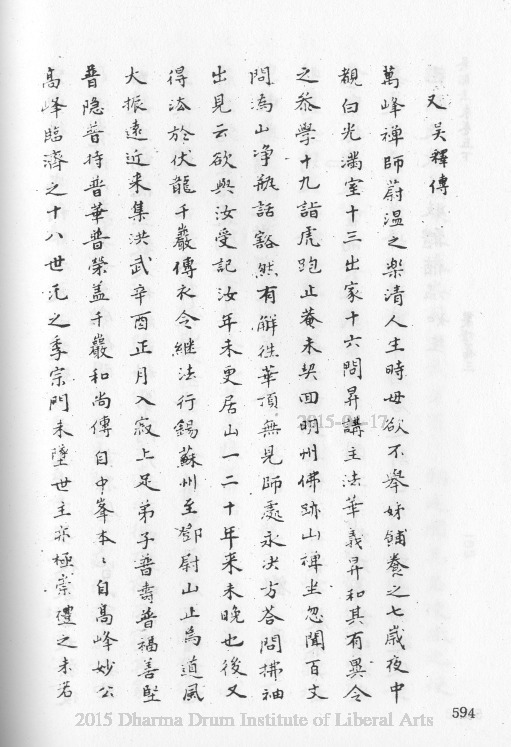 又吳釋傳
萬峰禪師蔚溫之樂清人生時母欲不舉姊餔養之七歲夜中
覩白光滿室十三出家十六問昇講主法華義昇和其有異令
之叅學十九詣虎跑止菴未契回明州佛跡山禪坐忽聞百丈
問溈山淨瓶話豁然有解徃華頂無見師處永决方荅問拂袖
出見云欲與汝受記汝年未更居山一二十年来未晚也後又
得法於伏龍千巖傳衣令継法行錫蘇州至鄧尉山止爲道風
大振遠近来集洪武辛酉正月入寂上足弟子普壽普福善堅
普隐普持普華普榮盖千巖和尚傳自中峯本〻自髙峰妙公
髙峰臨濟之十八世元之季宗門未墜世主亦極崇禮之未若
594
2015-04-17
2015 Dharma Drum Institute of Liberal Arts